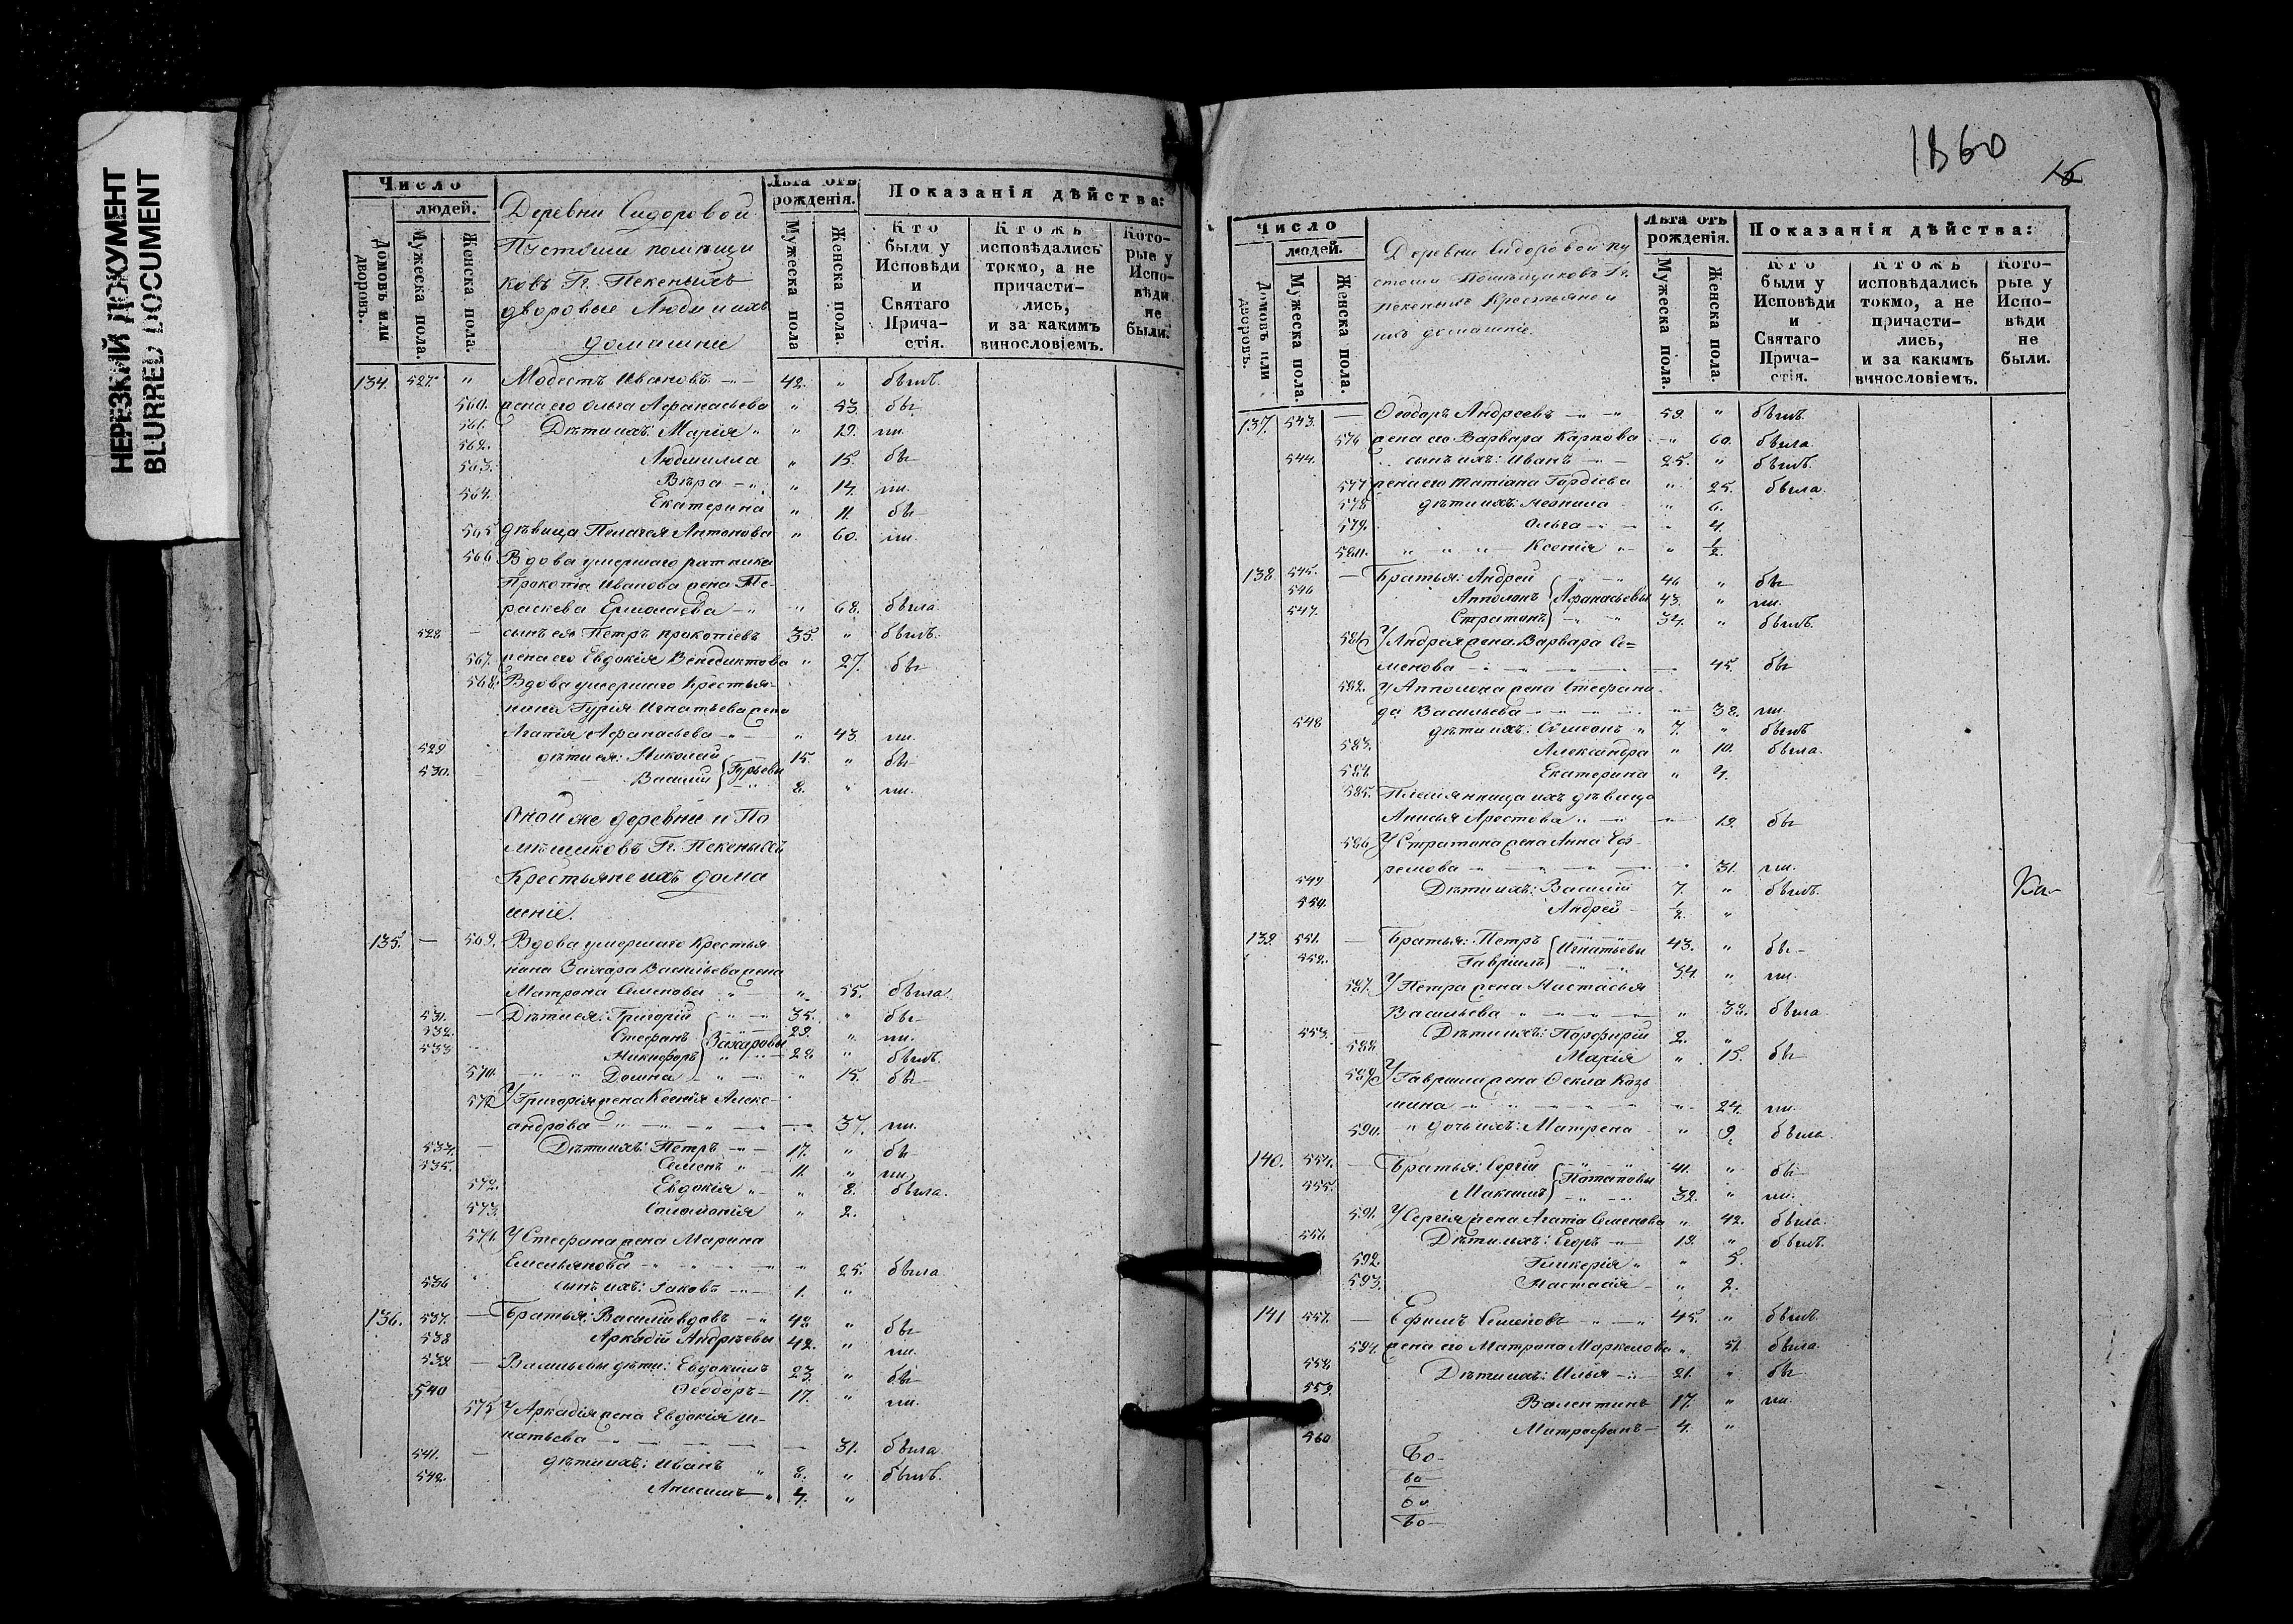 НЕРЕЗКИЙ ДОКУМЕНТ
BLURRED DOCUMENT
Число
людей.
Домовъ или дворовъ.
Мужеска пола.
Женска пола.
Деревни Сидоровой
Пустоши помѣщи
ковъ Гг. Пекеныхъ
дворовые Люди и ихъ
домашніе
Лѣта отъ рожденія.
Мужеска пола
Женска пола.
Показанія дѣйства:
Кто были у Исповѣди и Святаго Прича- стія.
Ктожъ исповѣдались токмо, а не причасти- лись, и за какимъ винословіемъ.
Кото- рые у Испо- вѣди не были.
134. 527. " Модестъ Ивановъ 42. " былъ.
560. жена его Ольга Аѳанасьева " 43. бы-
561. Дѣти ихъ: Марія " 19. ли.
562. Людмилла " 15. бы-
563. Вѣра " 14. ли.
564. Екатерина " 11. бы-
565 дѣвица Пелагея Антонова " 60. ли.
566 Вдова умершаго ратника
Прокопія Иванова жена Па-
раскева Ермолаева " 68. была
528 сынъ ея Петръ Прокопіевъ 35. " былъ.
567. жена его Евдокія Венедиктова " 27. бы-
568. Вдова умершаго Крестья-
нина Гурія Игнатьева жена
Агапія Аѳанасьева " 43 ли.
529 дѣти ея: Николай 15. " бы-
530. Василій } Гурьевы 8. " ли.
Оной же деревни и По
мѣщиковъ Гг. Пекеныхъ
Крестьяне и ихъ дома
шніе.
135. 569. Вдова умершаго Крестья
нина Захара Васильева жена
Матрона Семенова " 55. была.
531. Дѣти ея: Григорій 35. " бы-
532. Стефанъ } Захаровы 29. " ли.
533 Никифоръ 28 " былъ.
570 Домна " 15. бы-
571 У Григорія жена Ксенія Алекс-
андрова 37. ли.
534. Дѣти ихъ: Петръ 17. " бы-
535. Семенъ 11. " ли.
572. Евдокія " 8. была.
573. Соломонія " 2.
574. У Стефана жена Марина
Емельянова " 25. была.
536 сынъ ихъ: Іаковъ 1. "
136. 537. Братья: Василій вдовъ 48 " бы-
538 Аркадій Андреевы 42. " ли.
539 Васильевы дѣти: Евдокимъ 23. " бы-
540 Ѳеодоръ 17. " ли.
575 У Аркадія жена Евдокія Иг-
натьева 31. была.
541. дѣти ихъ: Иванъ 8. " былъ.
542. Анисимъ 4. "
1860
16
Число
людей.
Домовъ или дворовъ.
Мужеска пола.
Женска пола.
Деревни Сидоровой пу
стоши Помѣщиковъ Гг.
Пекеныхъ Крестьяне и
ихъ домашніе.
Лѣта отъ рожденія.
Мужеска пола.
Женска пола.
Показанія дѣйства:
Кто были у Исповѣди и Святаго Прича- стія.
Ктожъ исповѣдались токмо, а не причасти- лись, и за какимъ винословіемъ.
Кото- рые у Испо- вѣди не были.
137. 543. Ѳеодоръ Андреевъ 59. " былъ.
576 жена его Варвара Карпова " 60. была.
544. сынъ ихъ: Иванъ 25. " былъ.
577 жена его Татіана Гордіева " 25. была.
578 дѣти ихъ: Неонила " 6.
579. Ольга 4.
580. Ксенія " 1/2.
138. 545. Братья: Андрей 46 " бы
546 Апполонъ } Аѳанасьевы 43. " ли.
547. Стратонъ 34. " былъ.
581 У Андрея жена Варвара Се=
менова 45. бы
582. У Апполона жена Стефани
да Васильева 38. ли.
548 дѣти ихъ: Сѵмеонъ 7. " былъ
583. Александра " 10. была.
584. Екатерина " 4.
585. Племянница ихъ дѣвица
Анисья Арестова 19. бы
586 У Стратона жена Анна Еф-
ремова 31. ли.
549 Дѣти ихъ: Василій 7. " былъ. Ка-
550. Андрей 1/2. "
139. 551. Братья: Петръ 43. " бы-
552. Гавріилъ } Игнатьевы 34. " ли.
587. У Петра жена Настасья
Васильева " 38. была
553. Дѣти ихъ: Порфирій 2. "
588 Марія " 15. бы
589 У Гавріила жена Ѳекла Козь
мина 24. ли.
590. " дочь ихъ: Матрена " 9. была.
140. 554. Братья: Сергій 41. " бы
555. Максимъ } Потаповы 32. " ли.
591. У Сергія жена Агапія Семенова " 42. была.
556 Дѣти ихъ: Егоръ 19. " былъ.
592. Гликерія " 5.
593. Настасія " 2.
141 557. Ефимъ Семеновъ 45. " былъ
594. жена его Матрона Маркелова " 51. была.
558 Дѣти ихъ: Илья 21. " бы
559. Валентинъ 17. " ли.
560 Митрофанъ 4. "